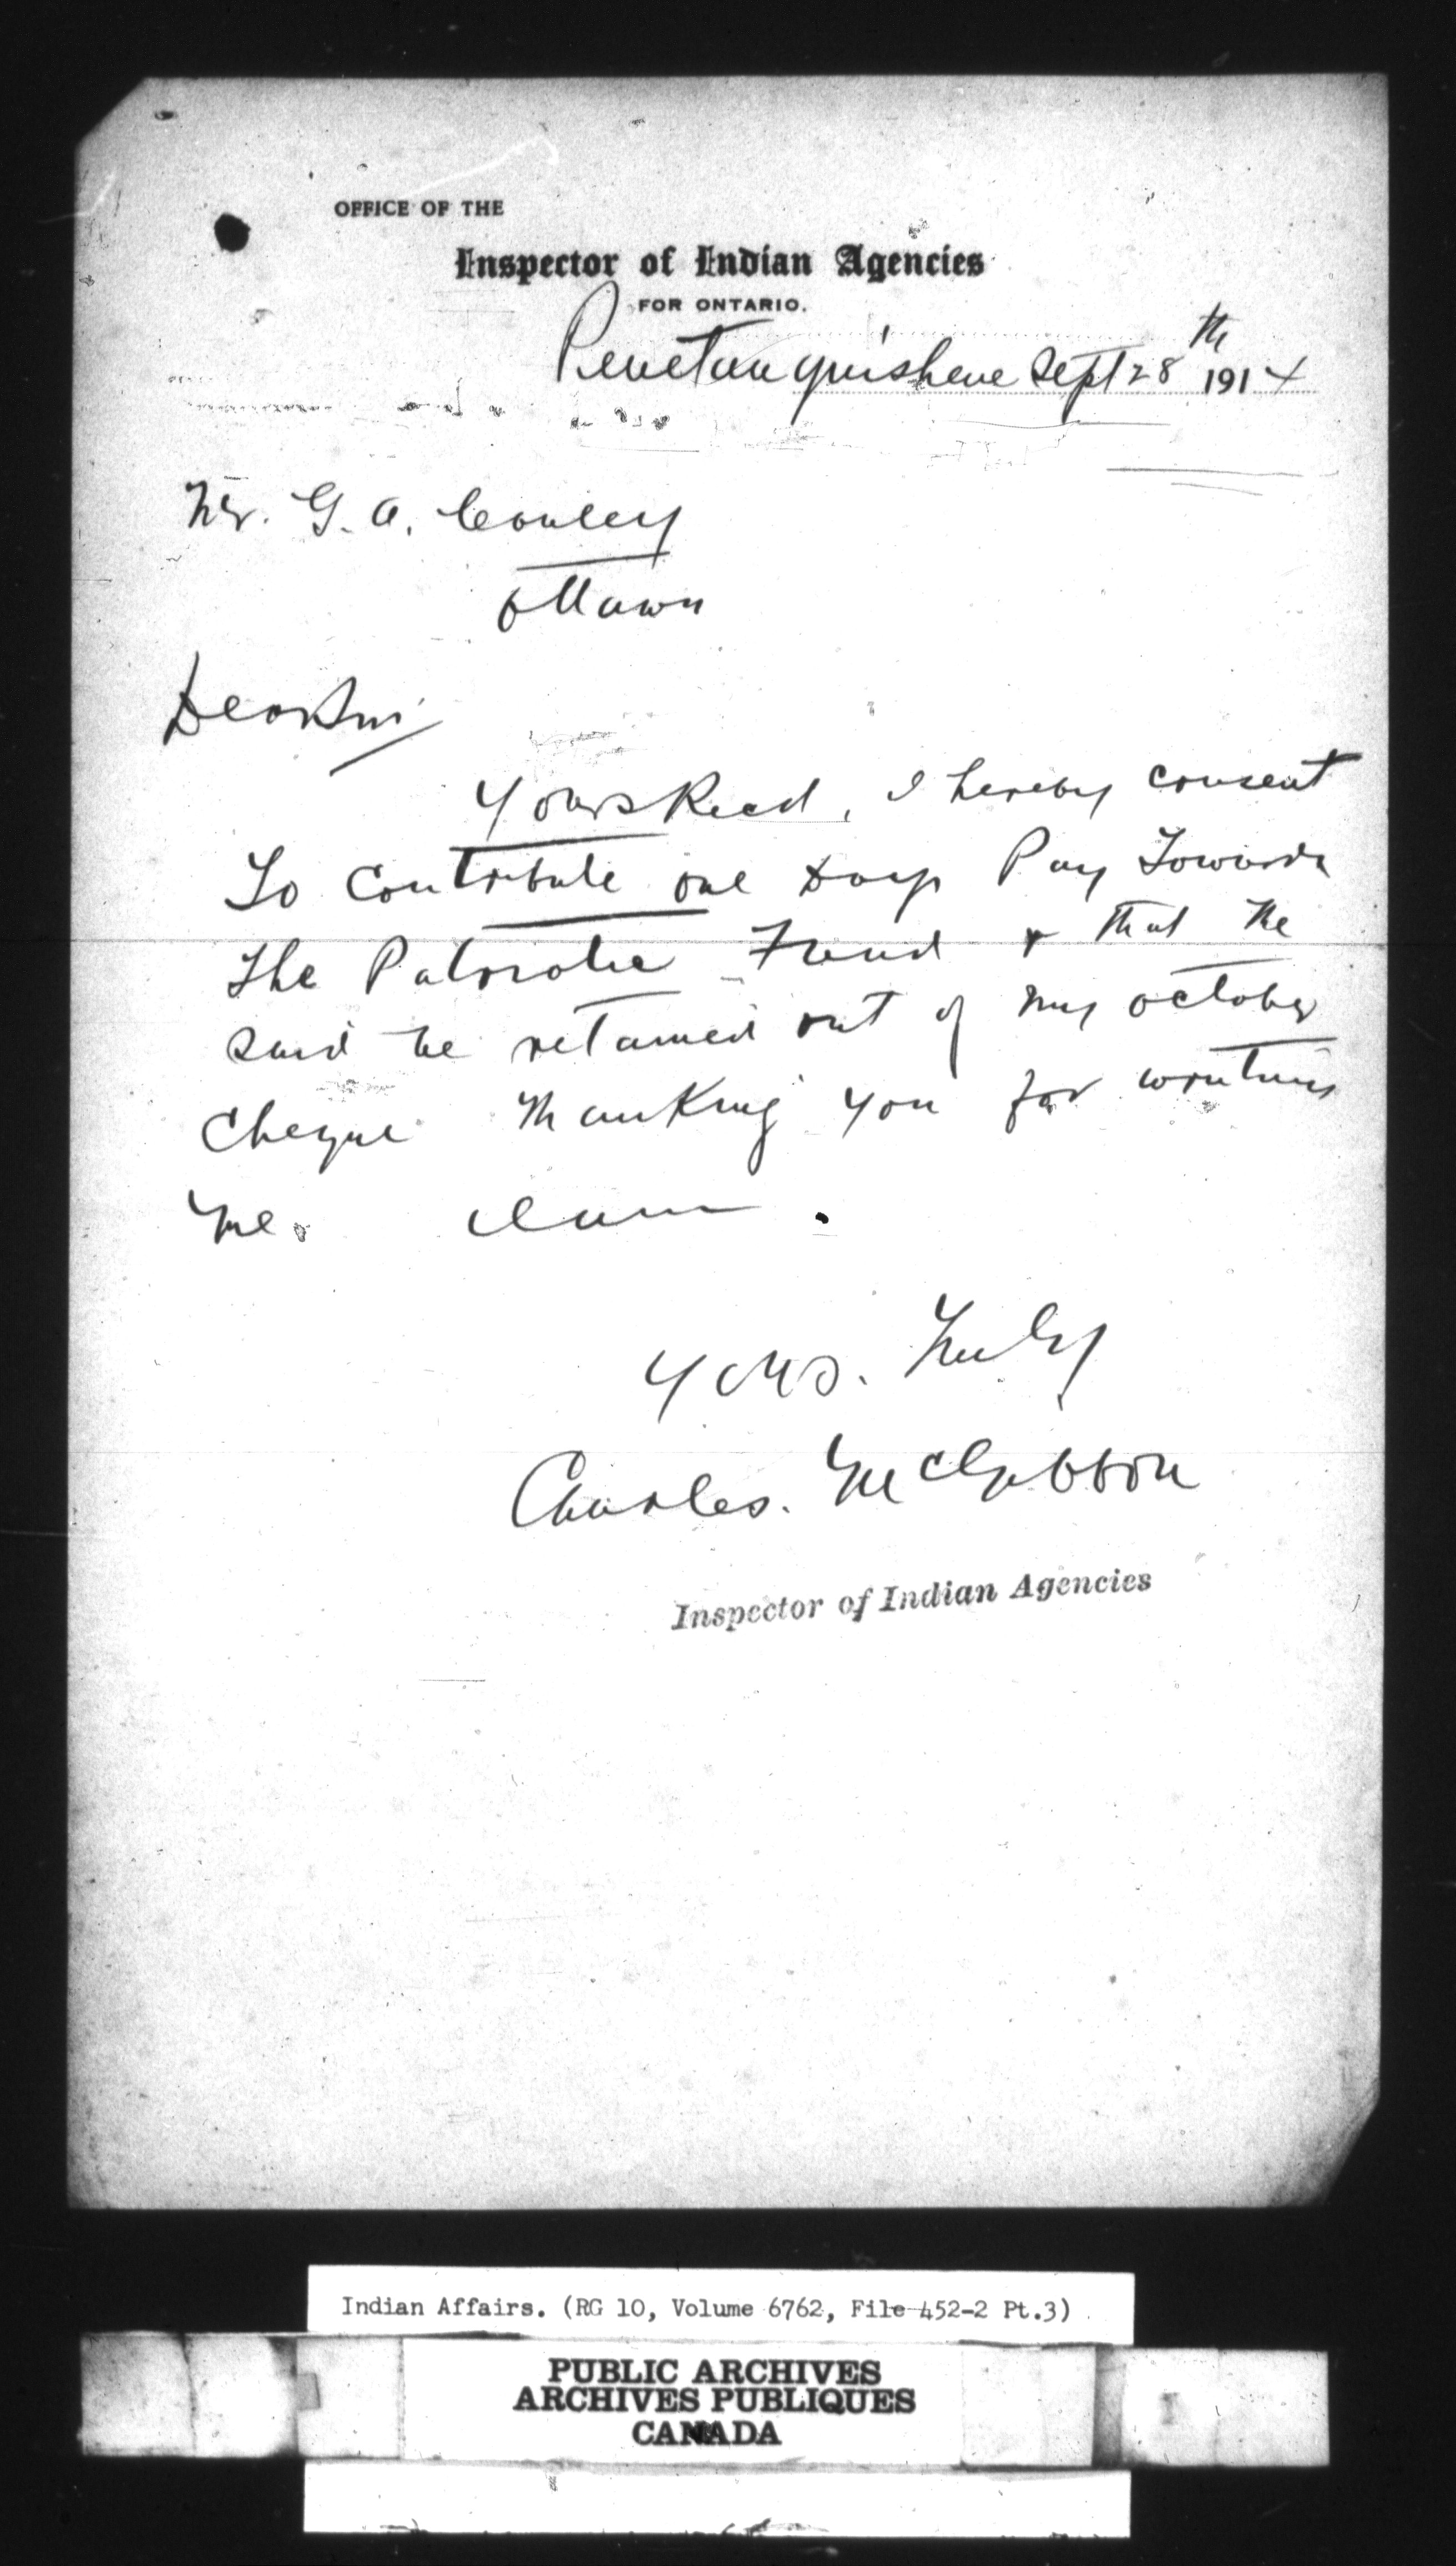 OFFICE OF THE
Inspector of Indian Agencies
FOR ONTARIO.
Penetanguishene Sept 28th 1914
Mr. G. A. Conley
Ottawa
Dear Sir
Yours Recd, I hereby consent
To Contribute one Days Pay Towards
The Patriotic Fund & that the
Said be retained out of my October
Cheque Thanking you for writing
me. I am .
Yours. Truly
Charles. McGibbon
Inspector of Indian Agencies
Indian Affairs. (RG 10, Volume 6762, File 452-2 Pt.3)
PUBLIC ARCHIVES
ARCHIVES PUBLIQUES
CANADA